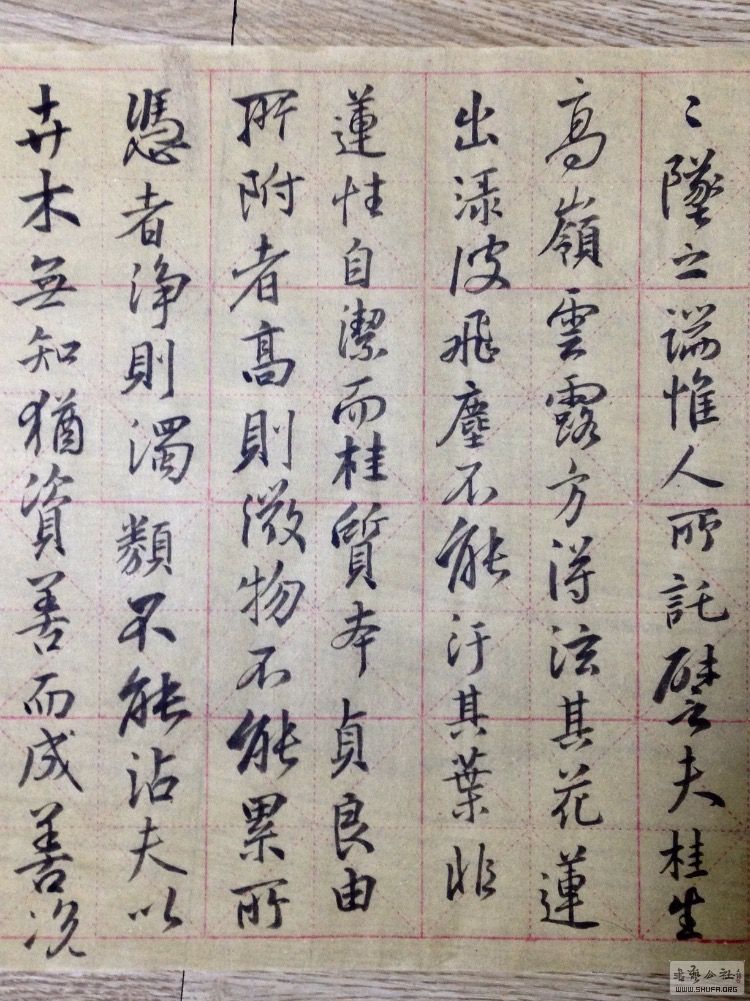 〻墜之端惟人所託譬夫桂生
高嶺雲露方得泫其花蓮
出淥波飛塵不能汙其葉非
蓮性自潔而桂質本貞良由
所附者高則微物不能累所
憑者淨則濁類不能沾夫以
卉木無知猶資善而成善況
書法公社
WWW.SHUFA.ORG